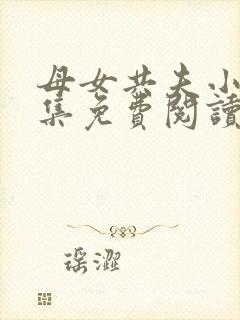 母女共夫小
集免費閱讀
瑶澀